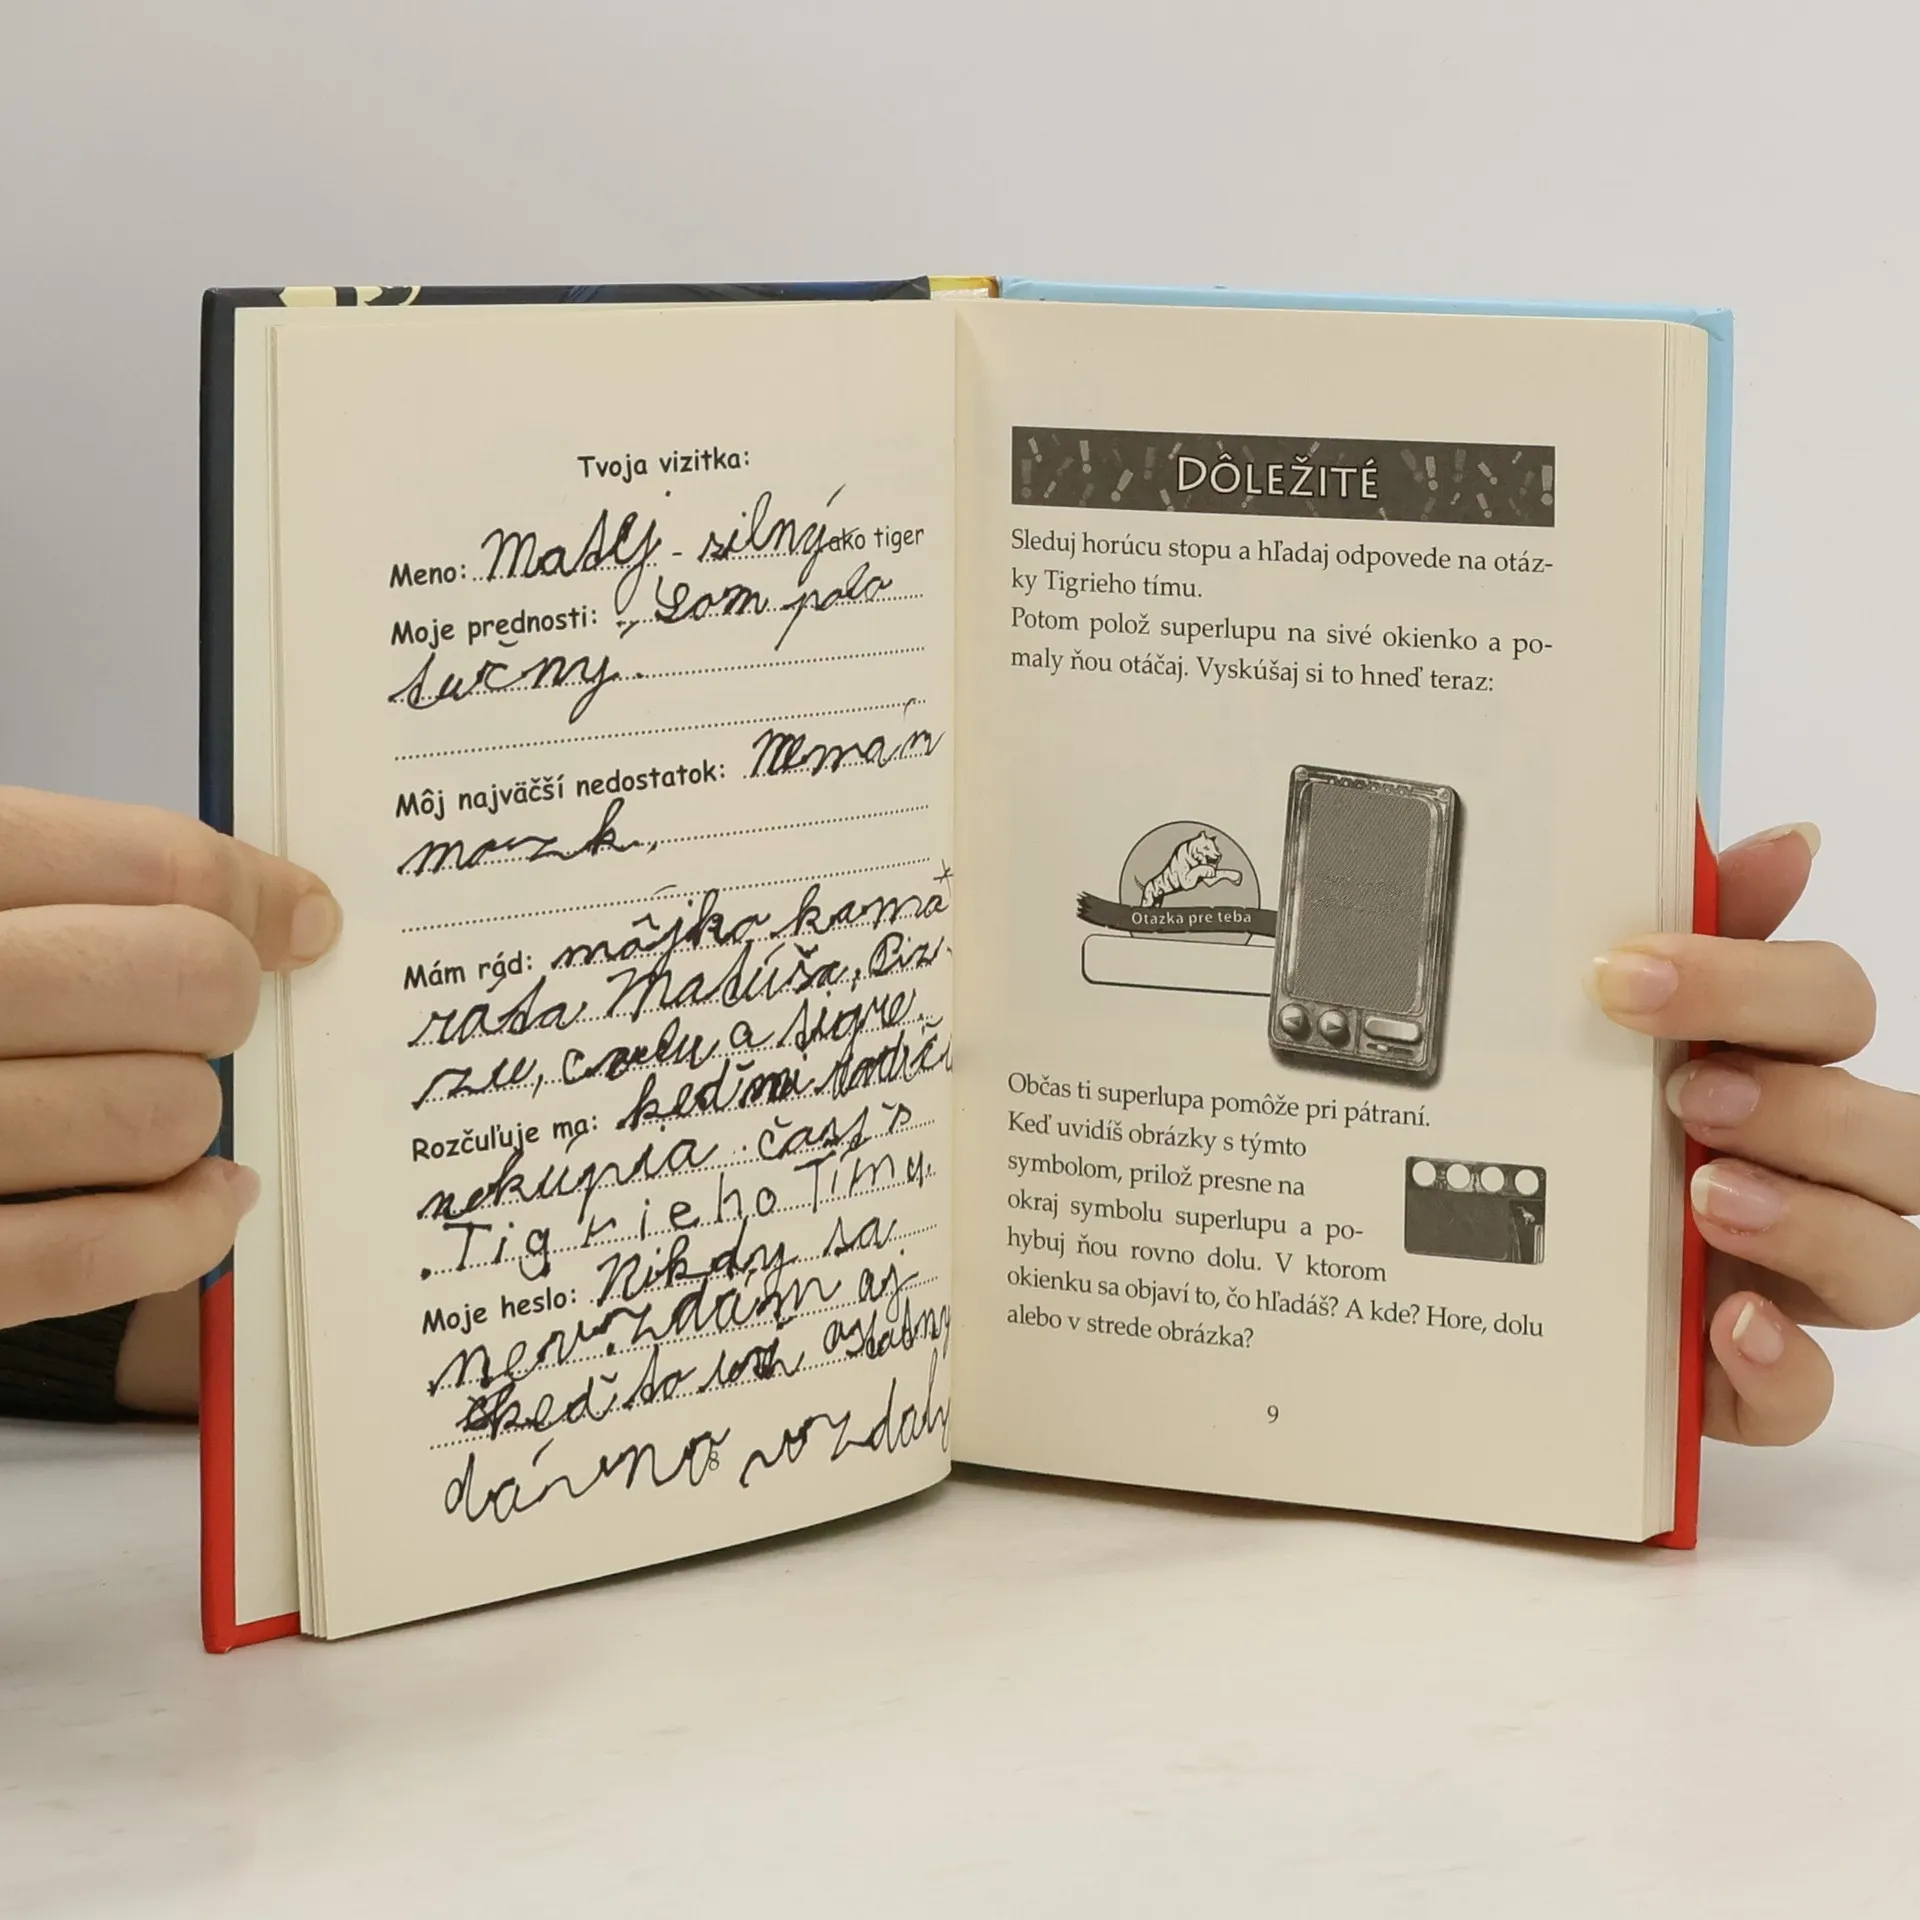 Tvoja vizitka:
Meno: Matej - silný ako tiger
Moje prednosti: Som polo
Môj najväčší nedostatok: Nemám
mozk.
Mám rád: môjho kama
ráta Matúša, Piz-
zu, colu a tigre.
Rozčuľuje ma: keď mi rodiči
nekúpia časť s
Tigrieho Tímu.
Moje heslo: Nikdy sa
nevozdám aj
keď to ostatný
dávno vozdaly
8
DÔLEŽITÉ
Sleduj horúcu stopu a hľadaj odpovede na otáz-
ky Tigrieho tímu.
Potom polož superlupu na sivé okienko a po-
maly ňou otáčaj. Vyskúšaj si to hneď teraz:
Otazka pre teba
Občas ti superlupa pomôže pri pátraní.
Keď uvidíš obrázky s týmto
symbolom, prilož presne na
okraj symbolu superlupu a po-
hybuj ňou rovno dolu. V ktorom
okienku sa objaví to, čo hľadáš? A kde? Hore, dolu
alebo v strede obrázka?
9